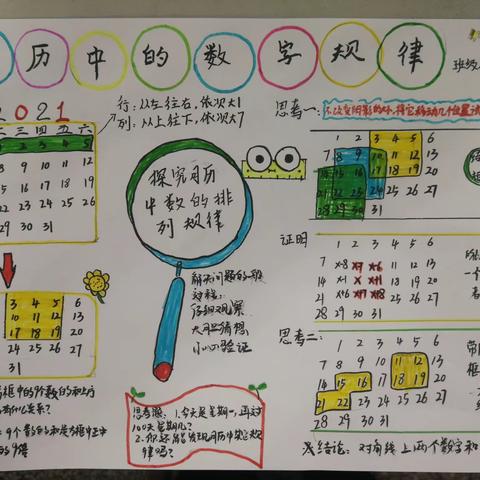 历中的数字规律
班级
2021
行:从左往右,依次大1
列:从上往下,依次大7
三 四 五 六
2 3 4 5
9 10 11 12
16 17 18 19
22 23 24 25 26
29 30 31
3 4 5 6
10 11 12 13
17 18 19 20
24 25 26 27
31
框中的9个数的和与
有什么关系?
9个数的和是方框中正中
的9倍
探究月历
中数的排
列规律
解决问题的一般
过程:
仔细观察
大胆猜想
小心验证
思考题:1.今天是星期一,再过
100天星期几?
2.你还能发现月历中其它规
律吗?
思考一:
不改变阴影的大小,将它移动几个位置试
1 2 3 4 5 6
7 8 9 10 11 12 13
14 15 16 17 18 19 20
21 22 23 24 25 26 27
28 29 30 31
证明
1 2 3 4 5 6
7 x-8 x-7 x-6 11 12 13
14 x-1 x x+1 18 19 20
21 x+6 x+7 x+8 25 26 27
28 29 30 31
思考二:
1 2 3 4 5 6
7 8 9 10 11 12 13
14 15 16 17 18 19 20
21 22 23 24 25 26 27
28 29 30 31
带
框
结论:对角线上两个数字和